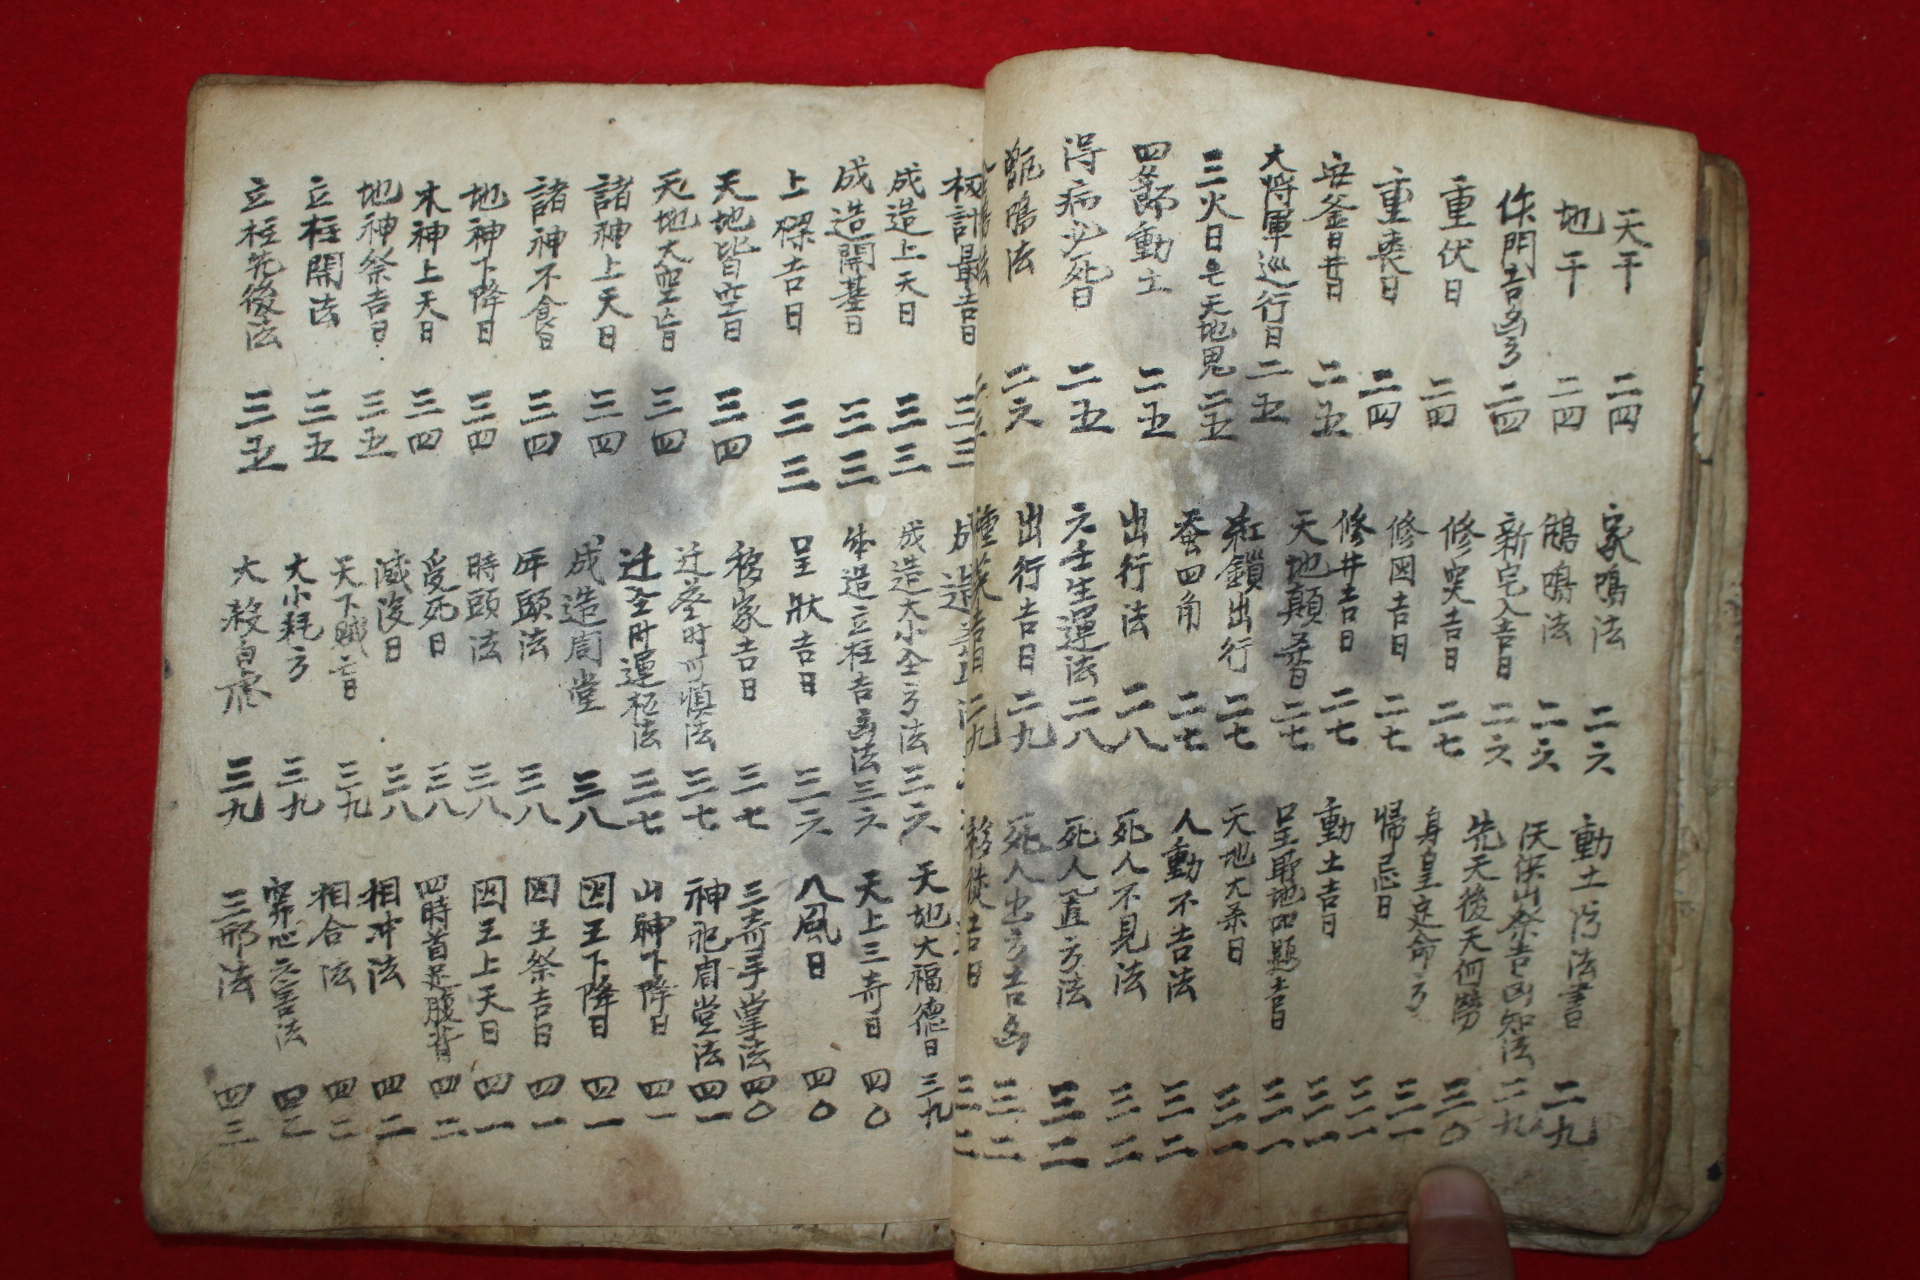 天干 二四
地干 二四
作門吉凶方 二四
重伏日 二四
重喪日 二四
安釜日吉日 二五
大将軍巡行日 二五
三火日 天地鬼 二五
四節動土 二五
得病必死日 二五
甑鳴法 二六
家鳴法 二六
鵂鳴法 二六
新宅入吉日 二六
修突吉日 二七
修囸吉日 二七
修井吉日 二七
天地顛 日 二七
紅鎖出行 二七
蚕四角 二七
出行法 二八
六壬生運法 二八
出行吉日 二九
二九
動土 法書 二九
伏 山祭吉凶知法 二九
先天後天何 三〇
身皇定命方 三一
帰忌日 三一
動土吉日 三一
三一
天地大 日 三一
人動不告法 三二
死人不見法 三二
死人置方法 三二
死人出方吉凶 三二
移徙吉日 三二
最吉日 三三
成造上天日 三三
成造開基日 三三
上樑吉日 三三
天地皆空日 三四
天地大空亡日 三四
諸神上天日 三四
諸神不食日 三四
地神下降日 三四
木神上天日 三四
地神祭吉日 三五
立柱開法 三五
立柱先後法 三五
成造
成造大小全方法 三六
成造立柱吉凶法 三六
呈狀吉日 三六
移家吉日 三七
迁 時可慎法 三七
迁全時運 法 三七
成造周堂 三八
年頭法 三八
時頭法 三八
受死日 三八
滅沒日 三八
天下賊亡日 三九
大小耗方 三九
大殺白虎 三九
天地大福德日 三九
天上三奇日 四〇
八風日 四〇
三奇手掌法 四〇
神祀周堂法 四一
山神下降日 四一
囸王下降日 四一
囸王祭吉日 四一
囸王上天日 四一
四時首足腹背 四二
相冲法 四二
相合法 四二
法 四二
三刑法 四三